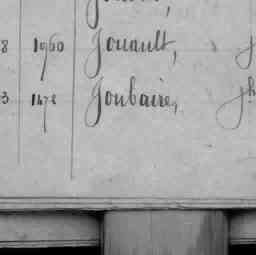 8 1960 Jouault, J
3 1478 Joubaire, Jh